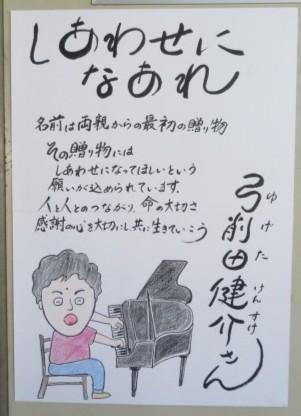 しあわせに
なあれ
名前は両親からの最初の贈り物
その贈り物には
しあわせになってほしいという
願いが込められています。
人と人とのつながり、命の大切さ
感謝の心を大切にし、共に生きていこう
弓削田健介さん
ゆげた
けんすけ